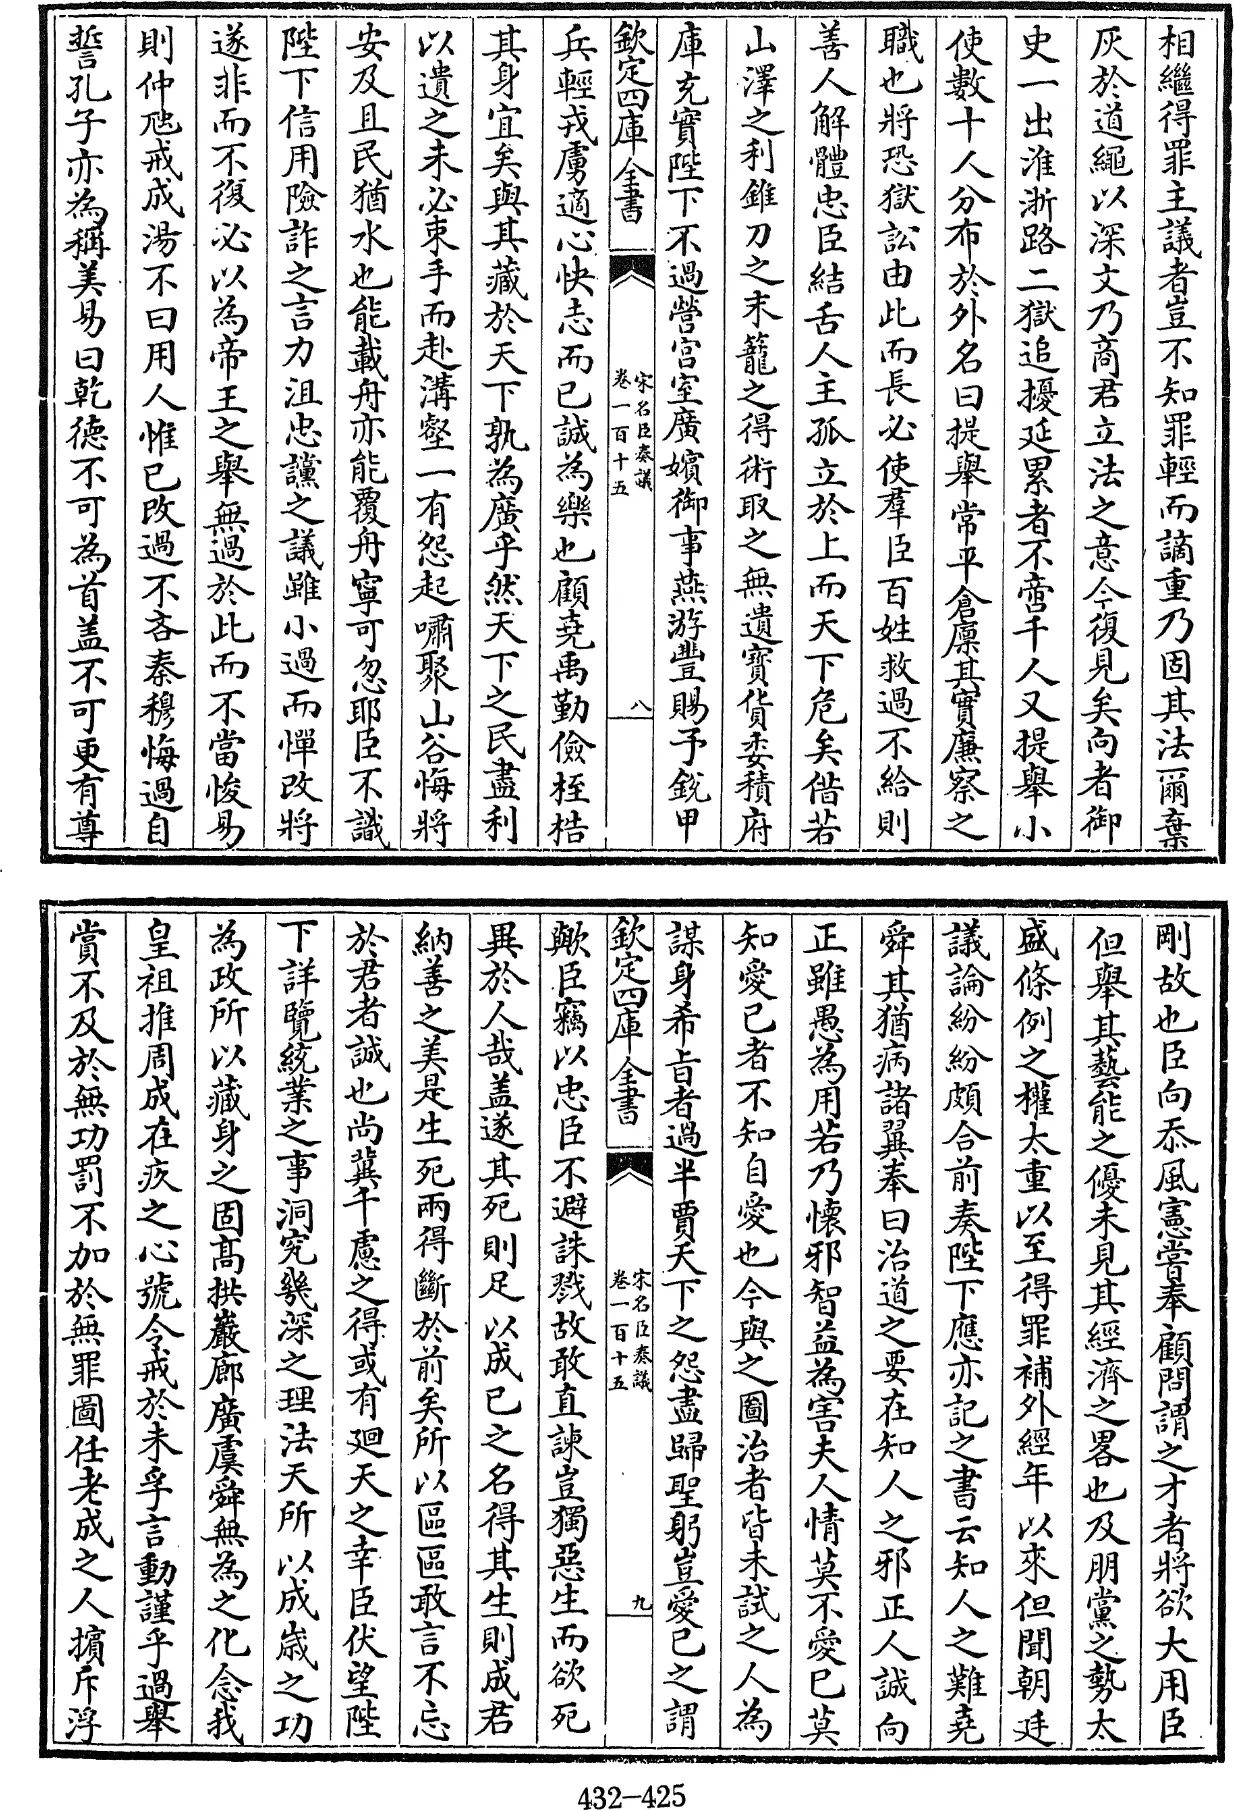 相繼得罪主議者豈不知罪輕而謫重乃固其法爾棄
灰於道繩以深文乃商君立法之意今復見矣向者御
史一出淮浙路二獄追擾延累者不啻千人又提舉小
使數十人分布於外名曰提舉常平倉廩其實廉察之
職也將恐獄訟由此而長必使羣臣百姓救過不給則
善人解體忠臣結舌人主孤立於上而天下危矣借若
山澤之利錐刀之末籠之得術取之無遺寳貨委積府
庫充實陛下不過營宫室廣嬪御事燕游豐賜予銳甲
欽定四庫全書
宋名臣奏議
卷一百十五
八
兵輕戎虜適心快志而已誠為樂也顧堯禹勤儉桎梏
其身宜矣與其藏於天下孰為廣乎然天下之民盡利
以遺之未必束手而赴溝壑一有怨起嘯聚山谷悔將
安及且民猶水也能載舟亦能覆舟寧可忽耶臣不識
陛下信用險詐之言力沮忠讜之議雖小過而憚改將
遂非而不復必以為帝王之舉無過於此而不當悛易
則仲虺戒成湯不曰用人惟已改過不吝秦穆悔過自
誓孔子亦為稱美易曰乾徳不可為首盖不可更有尊
剛故也臣向忝風憲嘗奉顧問謂之才者將欲大用臣
但舉其藝能之優未見其經濟之畧也及朋黨之勢太
盛條例之權太重以至得罪補外經年以來但聞朝廷
議論紛紛頗合前奏陛下應亦記之書云知人之難堯
舜其猶病諸翼奉曰治道之要在知人之邪正人誠向
正雖愚為用若乃懷邪智益為害夫人情莫不愛已莫
知愛已者不知自愛也今與之圖治者皆未試之人為
謀身希旨者過半賈天下之怨盡歸聖躬豈愛已之謂
欽定四庫全書
宋名臣奏議
卷一百十五
九
歟臣竊以忠臣不避誅戮故敢直諫豈獨惡生而欲死
異於人哉盖遂其死則足以成已之名得其生則成君
納善之美是生死兩得斷於前矣所以區區敢言不忘
於君者誠也尚冀千慮之得或有廻天之幸臣伏望陛
下詳覽統業之事洞究幾深之理法天所以成嵗之功
為政所以藏身之固髙拱巖廊廣虞舜無為之化念我
皇祖推周成在疚之心號令戒於未孚言動謹乎過舉
賞不及於無功罰不加於無罪圖任老成之人擯斥浮
432-425